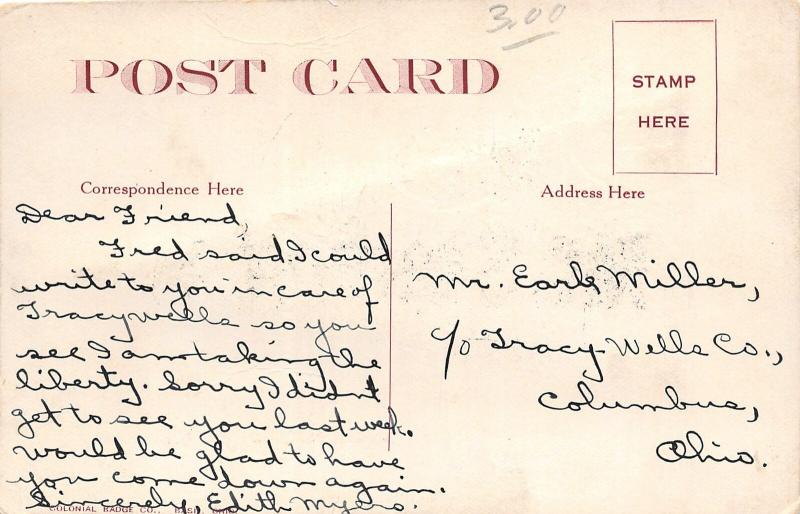 3.00
POST CARD
STAMP
HERE
Correspondence Here
Address Here
Dear Friend,
Fred said I could
write to you in care of
Tracy wells so you
see I am taking the
liberty. Sorry I didnt
get to see you last week.
would be glad to have
you come down again.
Sincerely, Edith Myers.
COLONIAL BADGE CO., BASIL, OHIO
Mr. Earl Miller,
c/o Tracy-Wells Co.,
Columbus,
Ohio.